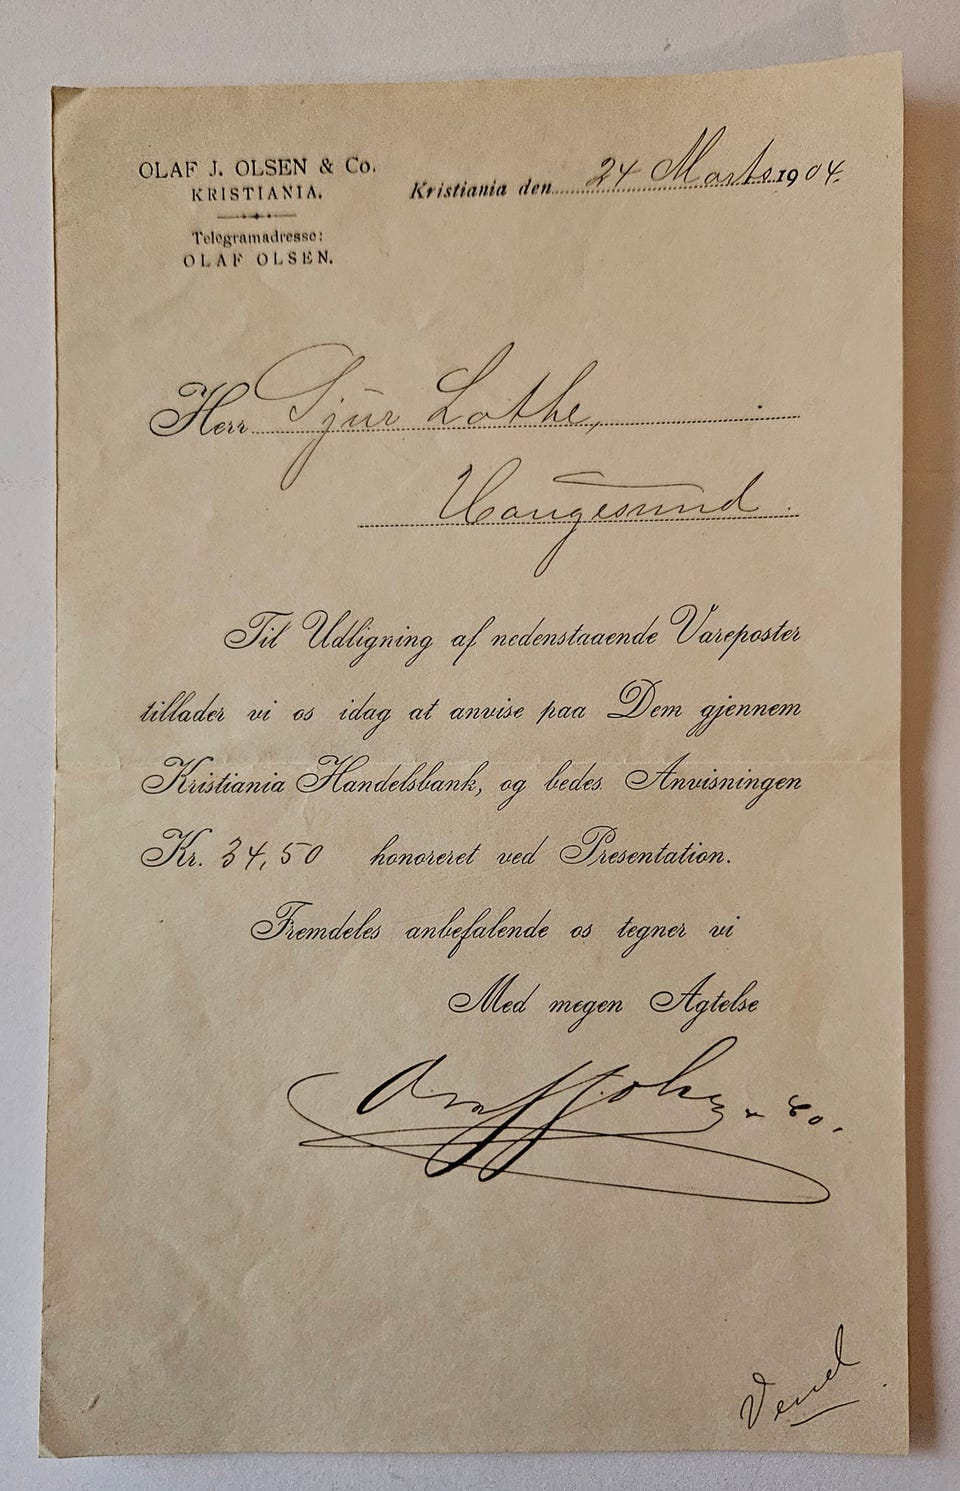 OLAF J. OLSEN & Co.
KRISTIANIA.
Telegramadresse:
OLAF OLSEN.
Kristiania den 24 Marts 1904.
Herr Sjur Lothe,
Haugesund.
Til Udligning af nedenstaaende Vareposter
tillader vi os idag at anvise paa Dem gjennem
Kristiania Handelsbank, og bedes Anvisningen
Kr. 34,50 honoreret ved Presentation.
Fremdeles anbefalende os tegner vi
Med megen Agtelse
Olaf J Olsen & Co.
Vend